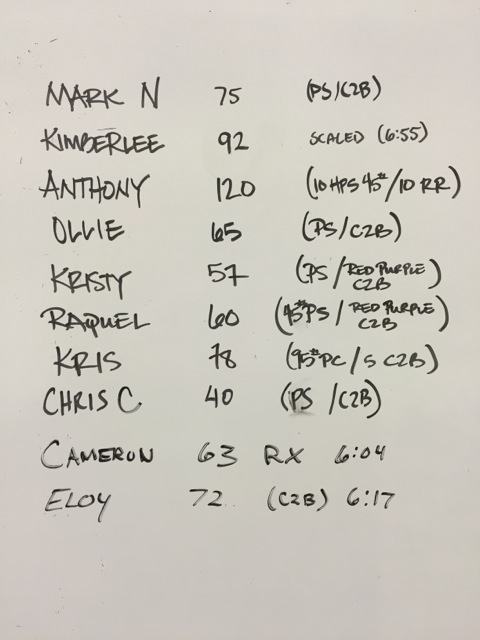 MARK N 75 (PS/C2B)
KIMBERLEE 92 SCALED (6:55)
ANTHONY 120 (10 HPS 45#/10 RR)
OLLIE 65 (PS/C2B)
KRISTY 57 (PS/RED PURPLE C2B)
RAQUEL 60 (45# PS/RED PURPLE C2B)
KRIS 78 (95# PC/5 C2B)
CHRIS C 40 (PS/C2B)
CAMERON 63 RX 6:04
ELOY 72 (C2B) 6:17